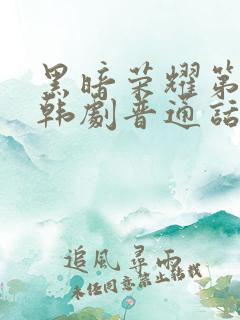 黑暗荣耀第
韩劇普通話
追風尋雨
未任同意禁止转载